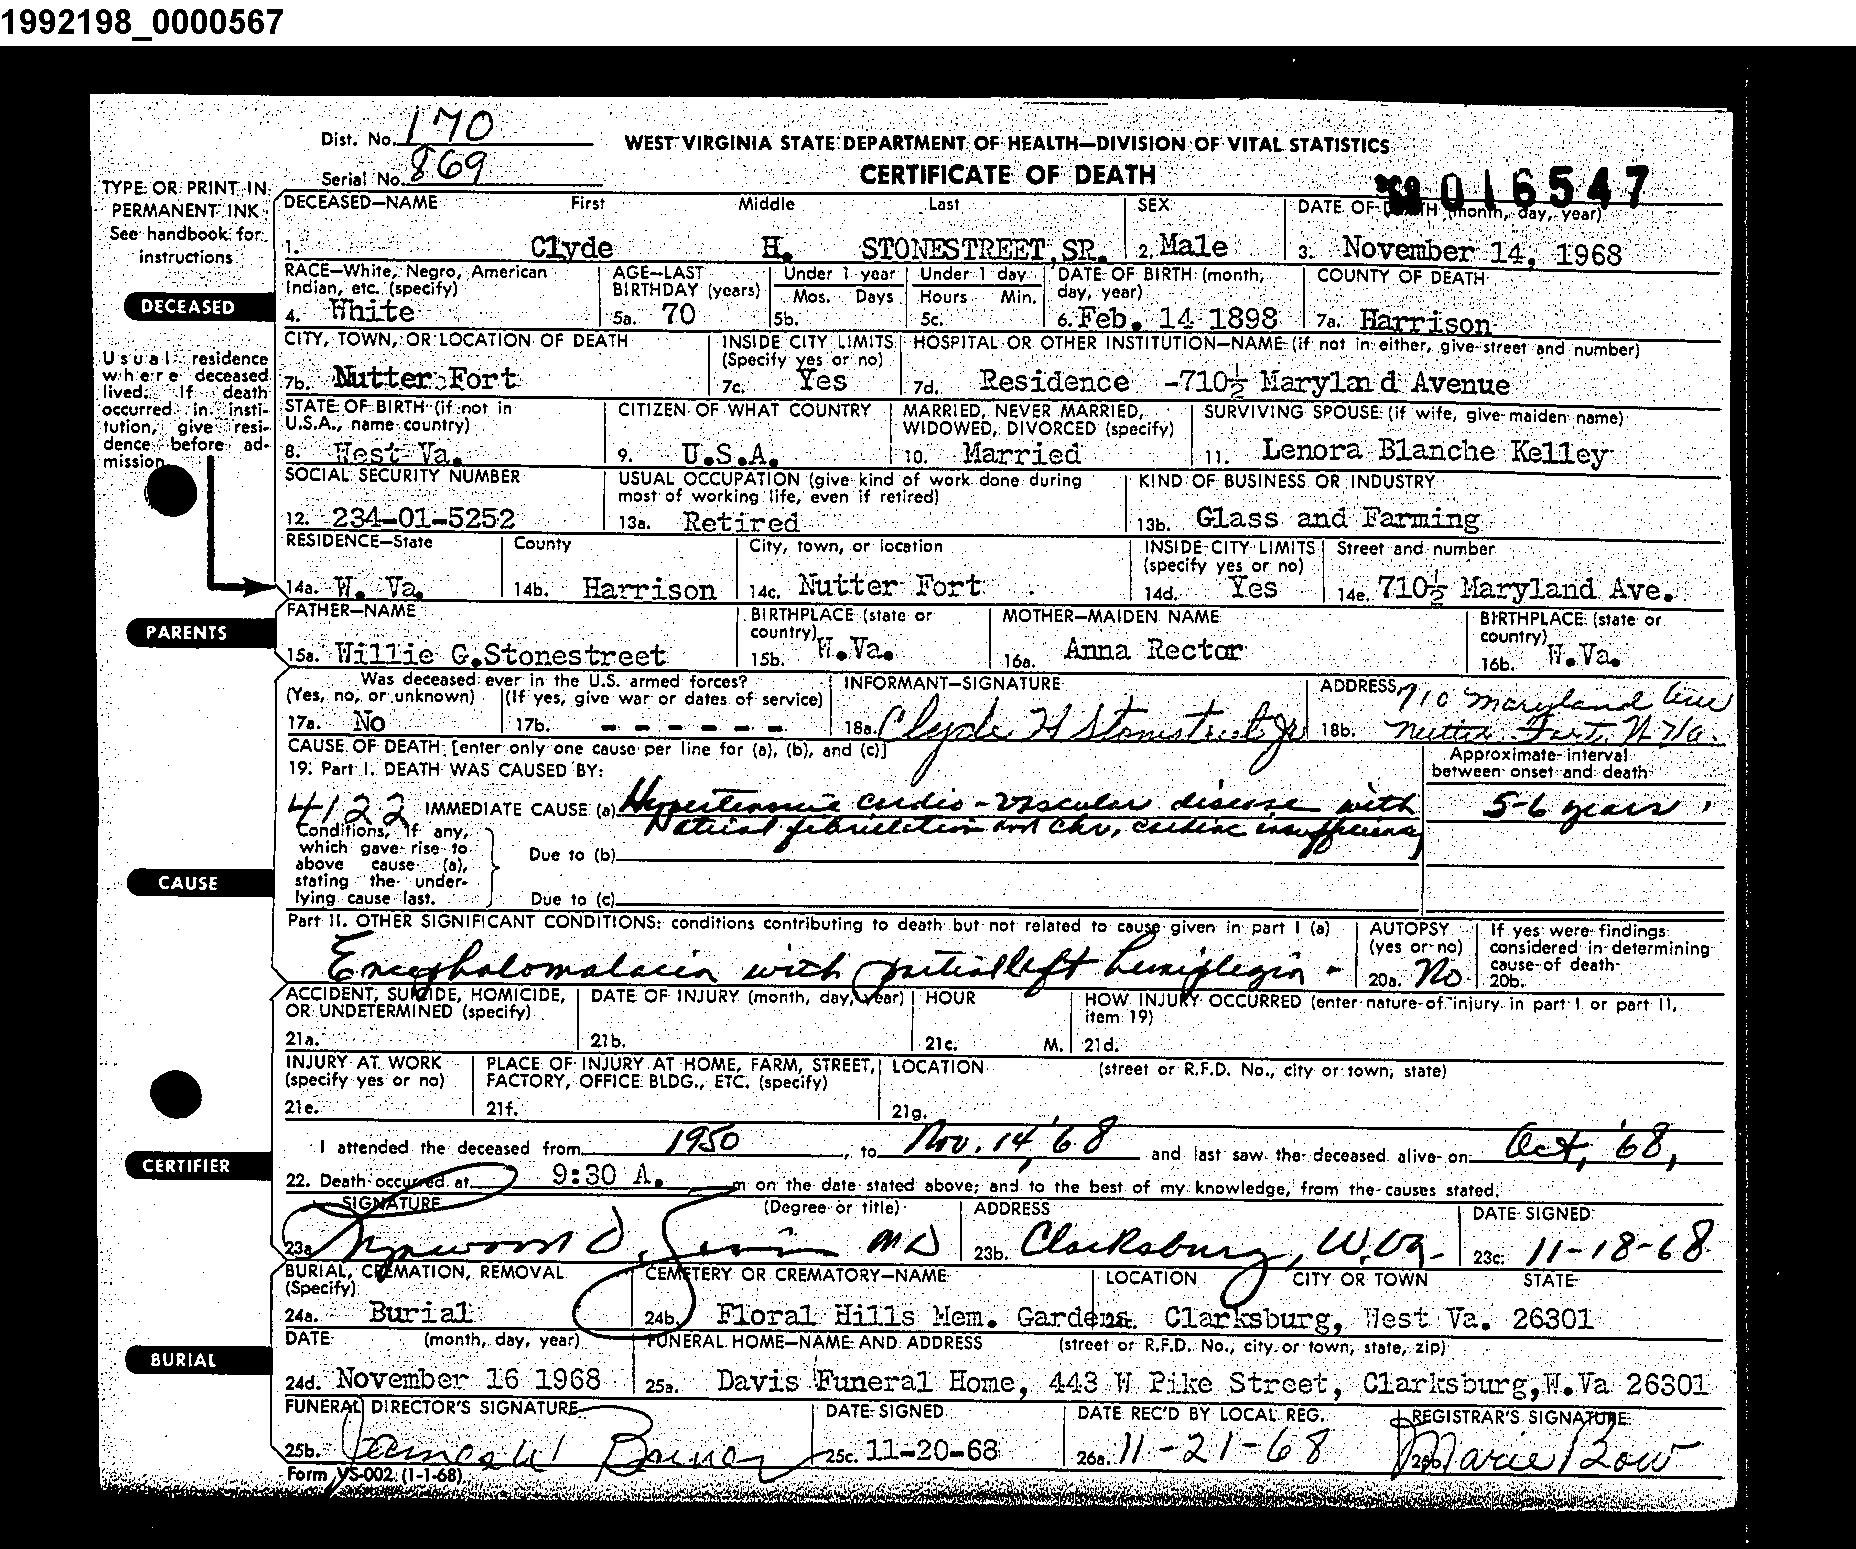 1992198_0000567
Dist. No. 170
WEST VIRGINIA STATE DEPARTMENT OF HEALTH—DIVISION OF VITAL STATISTICS
Serial No. 869
CERTIFICATE OF DEATH
016547
TYPE OR PRINT IN
PERMANENT INK
See handbook for
instructions
DECEASED—NAME First Middle Last SEX DATE OF DEATH (month, day, year)
1. Clyde H. STONESTREET,SR. 2. Male 3. November 14, 1968
DECEASED
RACE—White, Negro, American AGE—LAST Under 1 year Under 1 day DATE OF BIRTH (month, COUNTY OF DEATH
Indian, etc. (specify) BIRTHDAY (years) Mos. Days Hours Min. day, year)
4. White 5a. 70 5b. 5c. 6. Feb. 14 1898 7a. Harrison
Usual residence
where deceased
lived. If death
occurred in insti-
tution, give resi-
dence before ad-
mission
CITY, TOWN, OR LOCATION OF DEATH INSIDE CITY LIMITS HOSPITAL OR OTHER INSTITUTION—NAME (if not in either, give street and number)
(Specify yes or no)
7b. Nutter Fort 7c. Yes 7d. Residence -710½ Maryland Avenue
STATE OF BIRTH (if not in CITIZEN OF WHAT COUNTRY MARRIED, NEVER MARRIED, SURVIVING SPOUSE (if wife, give maiden name)
U.S.A., name country) WIDOWED, DIVORCED (specify)
8. West Va. 9. U.S.A. 10. Married 11. Lenora Blanche Kelley
SOCIAL SECURITY NUMBER USUAL OCCUPATION (give kind of work done during KIND OF BUSINESS OR INDUSTRY
most of working life, even if retired)
12. 234-01-5252 13a. Retired 13b. Glass and Farming
RESIDENCE—State County City, town, or location INSIDE CITY LIMITS Street and number
(specify yes or no)
14a. W. Va. 14b. Harrison 14c. Nutter Fort 14d. Yes 14e. 710½ Maryland Ave.
PARENTS
FATHER—NAME BIRTHPLACE (state or MOTHER—MAIDEN NAME BIRTHPLACE (state or
country) country)
15a. Willie G.Stonestreet 15b. W.Va. 16a. Anna Rector 16b. W.Va.
Was deceased ever in the U.S. armed forces? INFORMANT—SIGNATURE ADDRESS 710 Maryland Ave
(Yes, no, or unknown) (If yes, give war or dates of service)
17a. No 17b. - - - - - - 18a. Clyde H Stonestreet Jr 18b. Nutter Fort, W Va.
CAUSE OF DEATH [enter only one cause per line for (a), (b), and (c)] Approximate interval
19. Part I. DEATH WAS CAUSED BY: between onset and death
4122 IMMEDIATE CAUSE (a) Hypertensive cardio-vascular disease with 5-6 years
fibrillation and chr. cardiac insufficiency
Conditions, if any,
which gave rise to
above cause (a),
stating the under-
lying cause last.
Due to (b)
CAUSE
Due to (c)
Part II. OTHER SIGNIFICANT CONDITIONS: conditions contributing to death but not related to cause given in part I (a) AUTOPSY If yes were findings
(yes or no) considered in determining
cause of death
Encephalomalacia with partial left hemiplegia - 20a. No 20b.
ACCIDENT, SUICIDE, HOMICIDE, DATE OF INJURY (month, day, year) HOUR HOW INJURY OCCURRED (enter nature of injury in part I or part II,
OR UNDETERMINED (specify) item 19)
21a. 21b. 21c. M. 21d.
INJURY AT WORK PLACE OF INJURY AT HOME, FARM, STREET, LOCATION (street or R.F.D. No., city or town, state)
(specify yes or no) FACTORY, OFFICE BLDG., ETC. (specify)
21e. 21f. 21g.
CERTIFIER
I attended the deceased from 1950, to Nov. 14, '68 and last saw the deceased alive on Oct, '68,
22. Death occurred at 9:30 A. m on the date stated above; and to the best of my knowledge, from the causes stated.
SIGNATURE (Degree or title) ADDRESS DATE SIGNED
23a. MD 23b. Clarksburg, W.Va. 23c. 11-18-68
BURIAL, CREMATION, REMOVAL CEMETERY OR CREMATORY—NAME LOCATION CITY OR TOWN STATE
(Specify)
24a. Burial 24b. Floral Hills Mem. Gardens. Clarksburg, West Va. 26301
BURIAL
DATE (month, day, year) FUNERAL HOME—NAME AND ADDRESS (street or R.F.D. No., city or town, state, zip)
24d. November 16 1968 25a. Davis Funeral Home, 443 W Pike Street, Clarksburg,W.Va 26301
FUNERAL DIRECTOR'S SIGNATURE DATE SIGNED DATE REC'D BY LOCAL REG. REGISTRAR'S SIGNATURE
25b. James W 25c. 11-20-68 26a. 11-21-68 26b. Marie Bow
Form VS-002 (1-1-68)